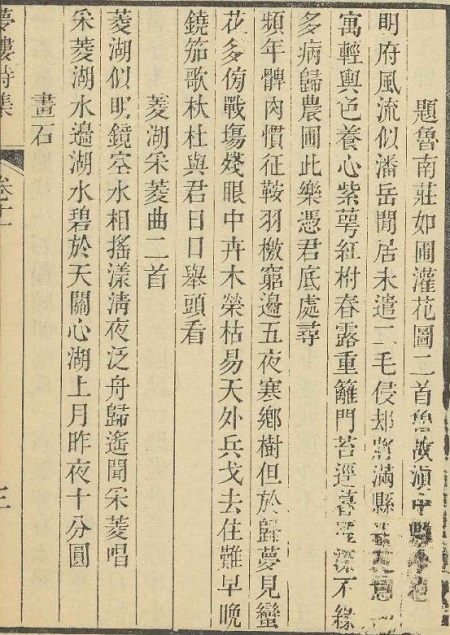 題魯南莊如圃灌花圖二首魯故滇中縣令也
明府風流似潘岳閒居未遣二毛侵却將滿縣意
寓輕輿色養心紫萼紅柎春露重籬門苔逕暮深不緣
多病歸農圃此樂憑君底處尋
頻年髀肉慣征鞍羽檄窮邊五夜寒鄉樹但於歸夢見蠻
花多傍戰塲殘眼中卉木榮枯易天外兵戈去住難早晚
鐃笳歌杕杜與君日日舉頭看
菱湖采菱曲二首
菱湖似明鏡空水相搖漾淸夜泛舟歸遙聞采菱唱
采菱湖水邊湖水碧於天關心湖上月昨夜十分圓
畫石
夢樓詩集 卷十一 三